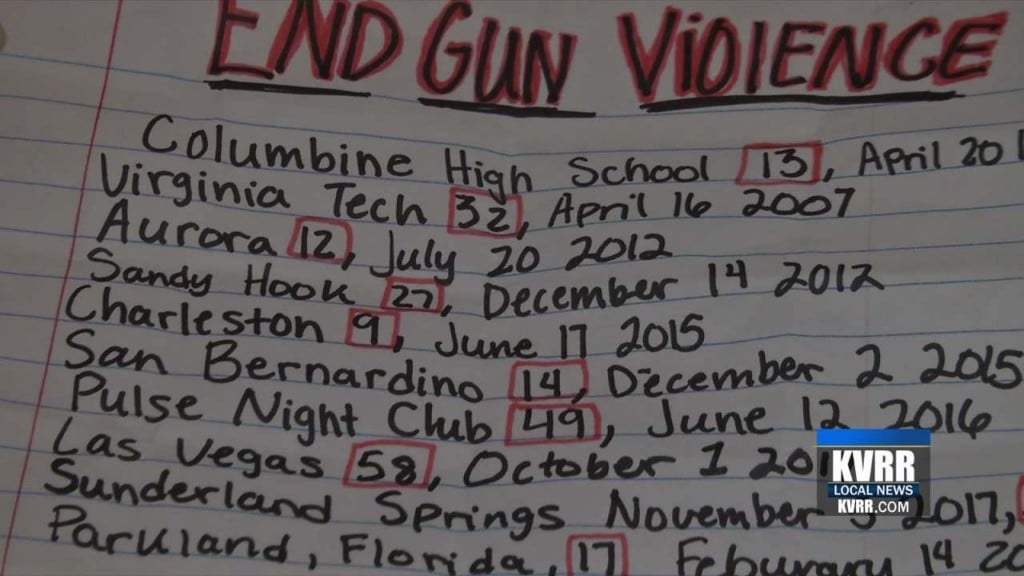 END GUN VIOlENCE
Columbine High School 13, April 20
Virginia Tech 32, April 16 2007
Aurora 12, July 20 2012
Sandy Hook 27, December 14 2012
Charleston 9, June 17 2015
San Bernardino 14, December 2 2015
Pulse Night Club 49, June 12 2016
Las Vegas 58, October 1 201
Sunderland Springs November 5 2017,
Parkland, Florida, 17 Feburary 14 20
KVRR
LOCAL NEWS
KVRR.COM